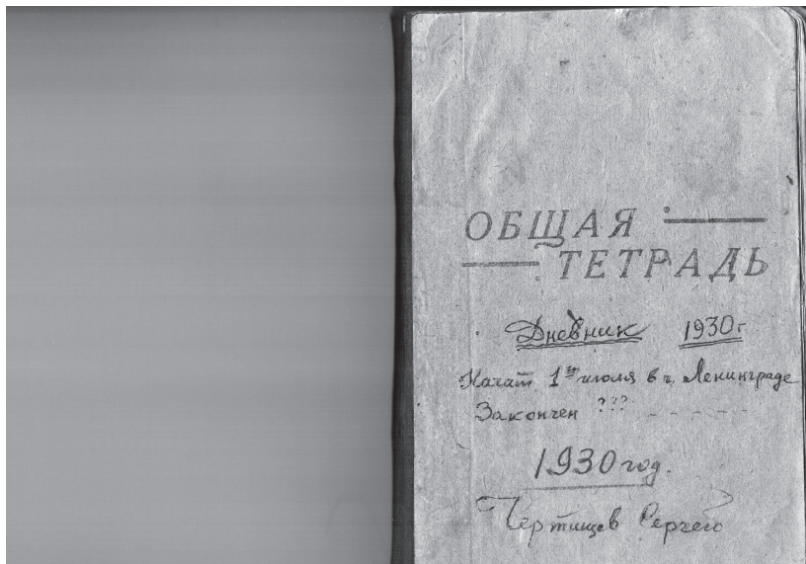 ОБЩАЯ
ТЕТРАДЬ
Дневник 1930 г.
Начат 1го июля в г. Ленинграде
Закончен ???
1930 год.
Сергей